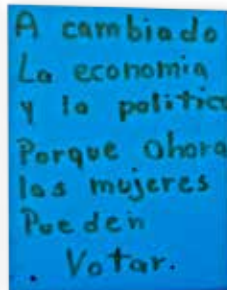 A cambiado
La economia
y la politica
Porque ahora
las mujeres
Pueden
Votar.